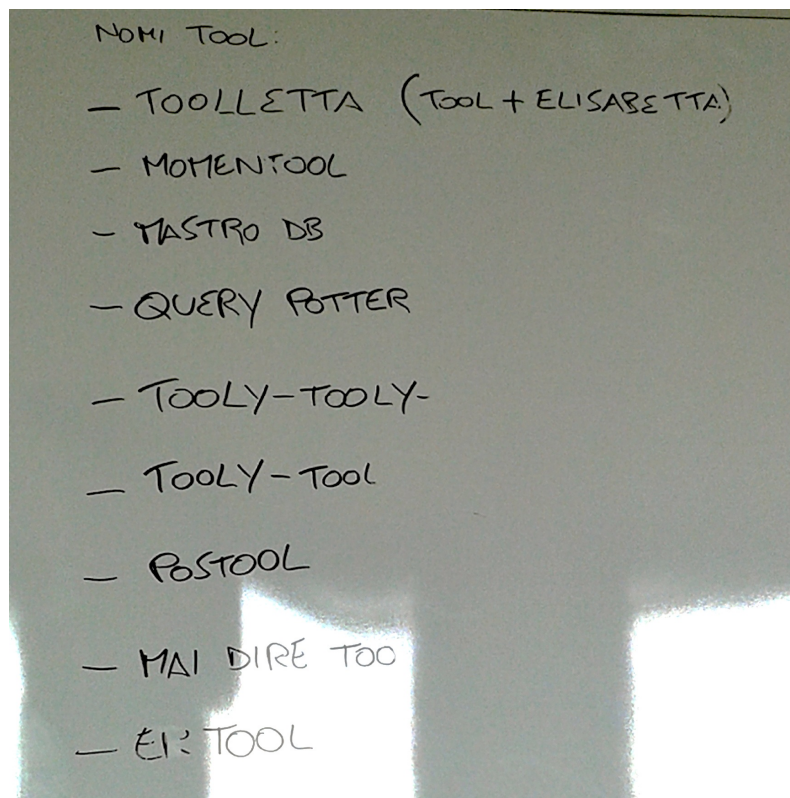 NOMI TOOL:
- TOOLLETTA (TOOL + ELISABETTA)
- MOMENTOOL
- MASTRO DB
- QUERY POTTER
- TOOLY-TOOLY-
- TOOLY-TOOL
- POSTOOL
- MAI DIRE TOO
- TOOL